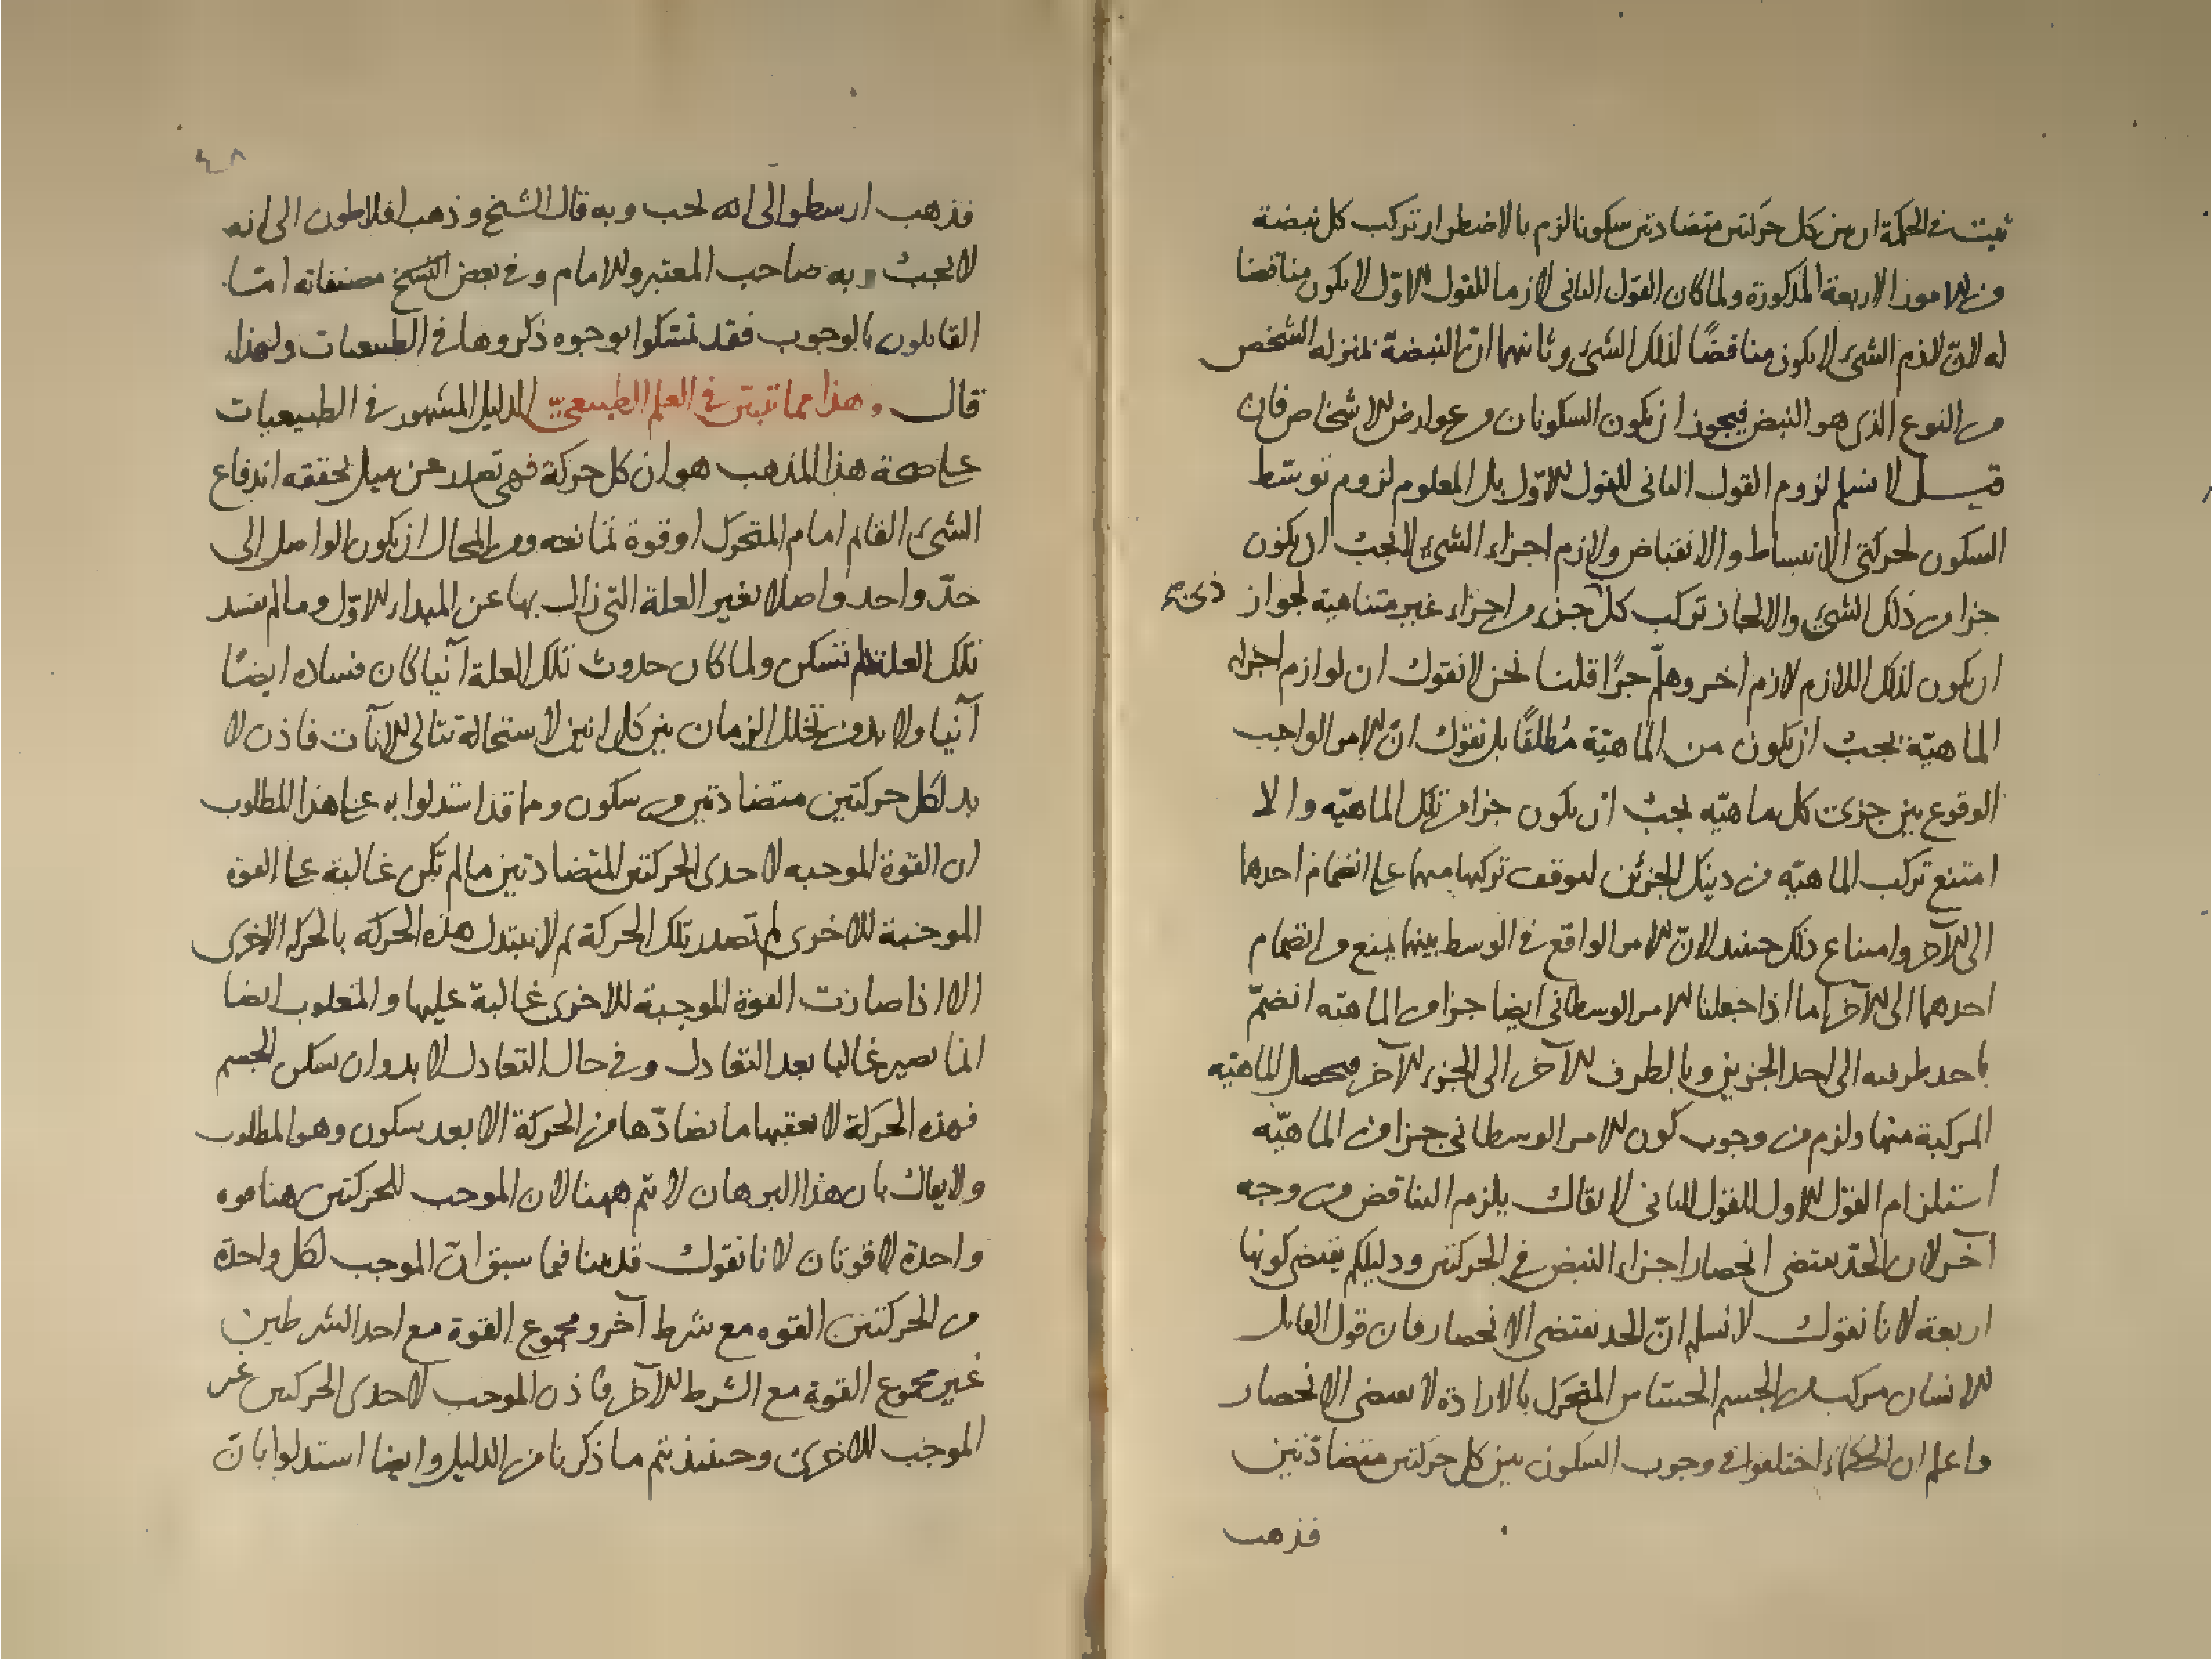 ثبت في الحكمة ان بين كل حركتين متضادتين سكونا لزم بالاضطرار تركب كل نبضة
من الامور الاربعة المذكورة ولما كان القول الثانى لازما للقول الاوّل لا يكون مناقضا
له لانّ لازم الشئ لا يكون مناقضًا لذلك الشئ وثانيهما انّ النبضة بمنزلة الشخص
من النوع الذى هو النبض فيجوز ان يكون السكونان من عوارض الاشخاص فان
قيل لا نسلم لزوم القول الثانى للقول الاوّل بل المعلوم لزوم توسّط
السكون لحركتى الانبساط والانقباض ولازم اجزاء الشئ لا يجب ان يكون
جزا من ذلك الشئ والا لجاز تركب كل جزء من اجزاء غير متناهية لجواز
ان يكون لذلك اللازم لازم اخر وهلمّ جرًّا قلنا نحن لا نقول ان لوازم اجزاء
الماهيّة يجب ان يكون من الماهيّة مُطلقًا بل نقول انّ الامر الواجب
الوقوع بين جزئ كل ماهيّه يجب ان يكون جزا من تلك الماهيّه والا
امتنع تركب الماهيّه من ذينك الجزئين لتوقف تركبها منهما على انضمام احدهما
الى الآخر وامتناع ذلك حينئذ لانّ الامر الواقع في الوسط بينهما يمنع من انضمام
احدهما الى الآخر اما اذا جعلنا الامر الوسطانى ايضا جزا من الماهيّه انضمّ
باحد طرفيه الى احد الجزئين وبالطرف الآخر الى الجزء الآخر فيحصل الماهيّه
المركبة منها ولزم من وجوب كون الامر الوسطانى جزا من الماهيّه
استلزام القول الاول للقول الثانى لا يقال يلزم التناقض من وجه
آخر لان الحدّ يقتضى انحصار اجزاء النبض في الحركتين ودليلكم يقتضى كونها
اربعة لانا نقول لا نسلم انّ الحد يقتضى الانحصار فان قول القائل
الانسان مركب من الجسم الحسّاس المتحرّك بالارادة لا يقتضى الانحصار
واعلم ان الحكماء اختلفوا في وجوب السكون بين كل حركتين متضادّتين
فذهب
٤٨
فذهب ارسطو الى انه يجب وبه قال الشيخ وذهب افلاطون الى انه
لا يجب وبه صاحب المعتبر والامام وفي بعض النسخ مصنفاته امّا
القايلون بالوجوب فقد تمسّكوا بوجوه ذكروها في الطبيعيات ولهذا
قال وهذا مما تبيّن في العلم الطبيعيّ الدليل المشهور في الطبيعيات
على صحة هذا المذهب هو ان كل حركة فهى تصدر عن ميل يحققه اندفاع
الشئ القائم امام المتحرك او قوة تمانعه ومن المحال ان يكون الواصل الى
حدّ واحد واصلا بغير العلة التى زال بها عن المبدا الاوّل وما لم يفسد
تلك العلة لم تسكن ولما كان حدوث تلك العلة آنيا كان فساده ايضًا
آنيا ولا بد من تخلل الزمان بين كل انين لاستحالة تتالى الآنات فاذن لا
بد لكل حركتين متضادتين من سكون ومما قد استدلوا به على هذا المطلوب
ان القوة الموجبه لاحدى الحركتين المتضادتين ما لم تكن غالبة على القوة
الموجبة للاخرى لم تصدر تلك الحركة ثم لا يتبدل هذه الحركه بالحركه الاخرى
الا اذا صارت القوة الموجبة للاخرى غالبة عليها والمغلوب ايضا
انما يصير غالبا بعد التعادل وفي حال التعادل لا بد وان يسكن الجسم
فهذه الحركة لا يعقبها ما يضادّها من الحركة الا بعد سكون وهو المطلوب
ولا يقال بان هذا البرهان لا يتم ههنا لان الموجب للحركتين هنا قوه
واحدة لا قوتان لانا نقول قد بينا فيما سبق انّ الموجب لكل واحدة
من الحركتين القوه مع شرط آخر ومجموع القوة مع احد الشرطين
غير مجموع القوة مع الشرط الآخر فاذن الموجب لاحدى الحركتين غير
الموجب للاخرى وحينئذ يتم ما ذكرنا من الدليل وايضا استدلوا بانّ